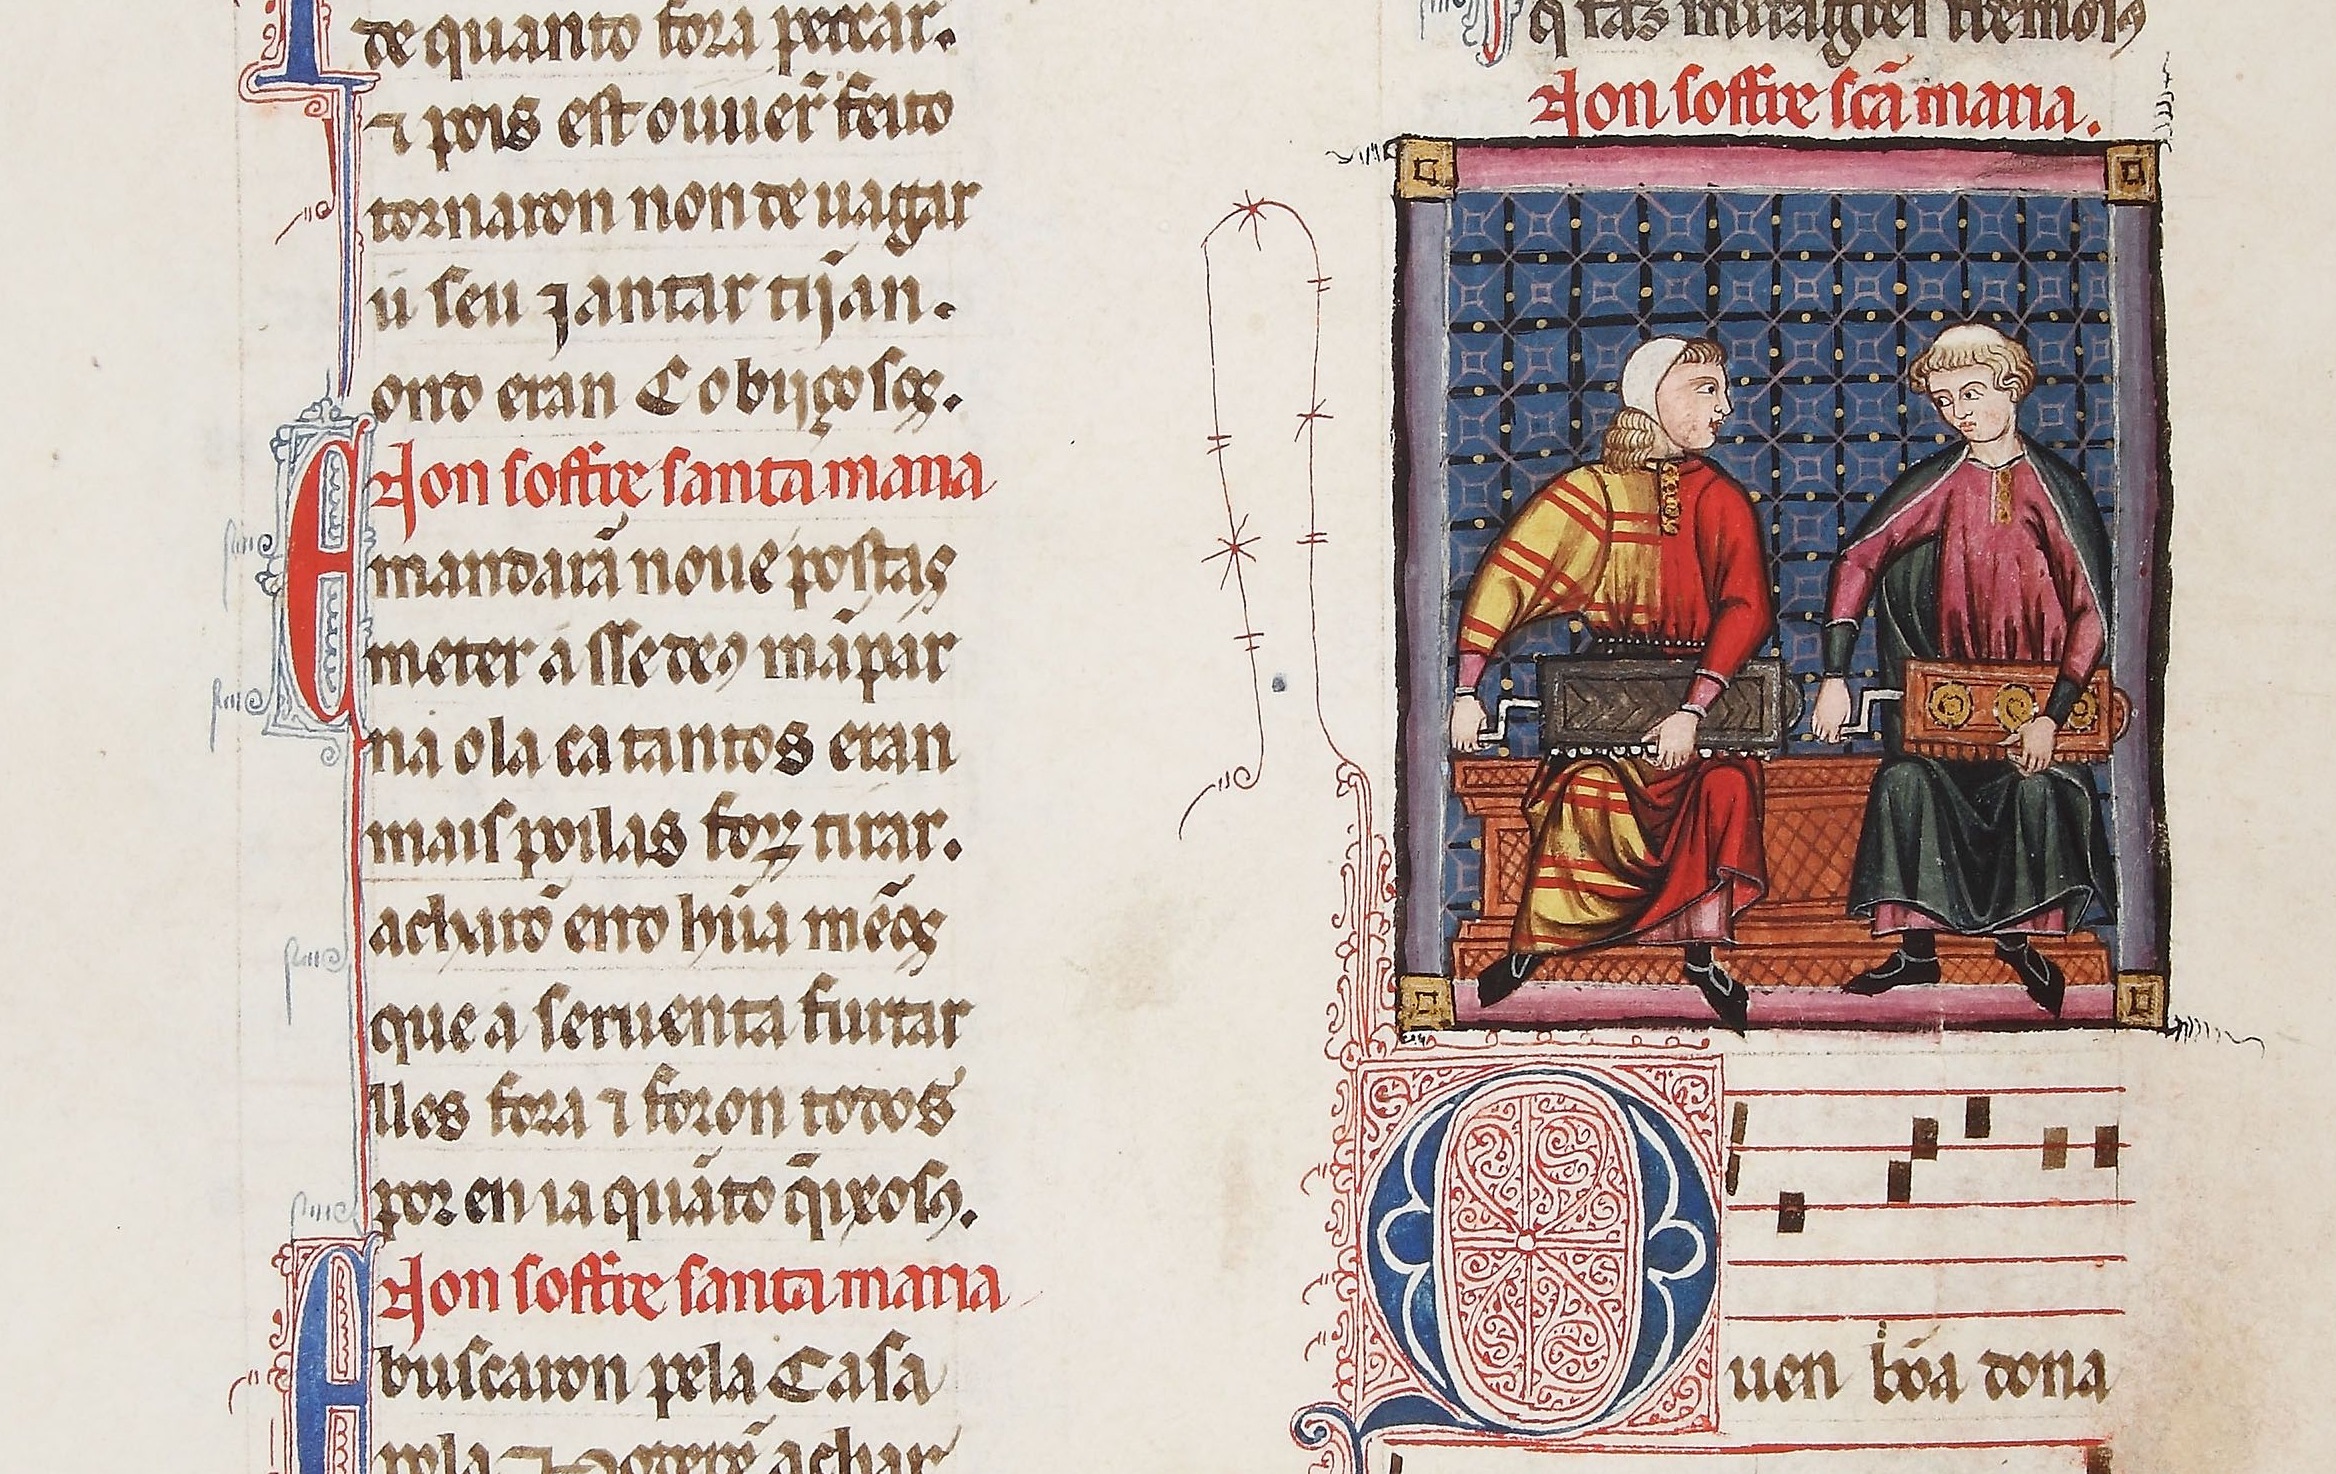 de quanto fora pecear.
⁊ pois est ouuer̃ feito
tornaron non de uagar
ũ seu jantar tijan.
onrro eran Cobijçosos.
Non soffre santa maria
mandarã noue postas
meter assedeus mãpar
na ola ca tantos eran
mais poilas forꝝ tirar.
acharõ end hũa mẽos
que a seruenta furtar
lles fora ⁊ foron todos
por en ia quãto q̃ixosos.
Non soffre santa maria
buscaron pela Casa
pola
achar
q̃ taes miragres
Non soffre sc̃a maria.
Quen bõa dona